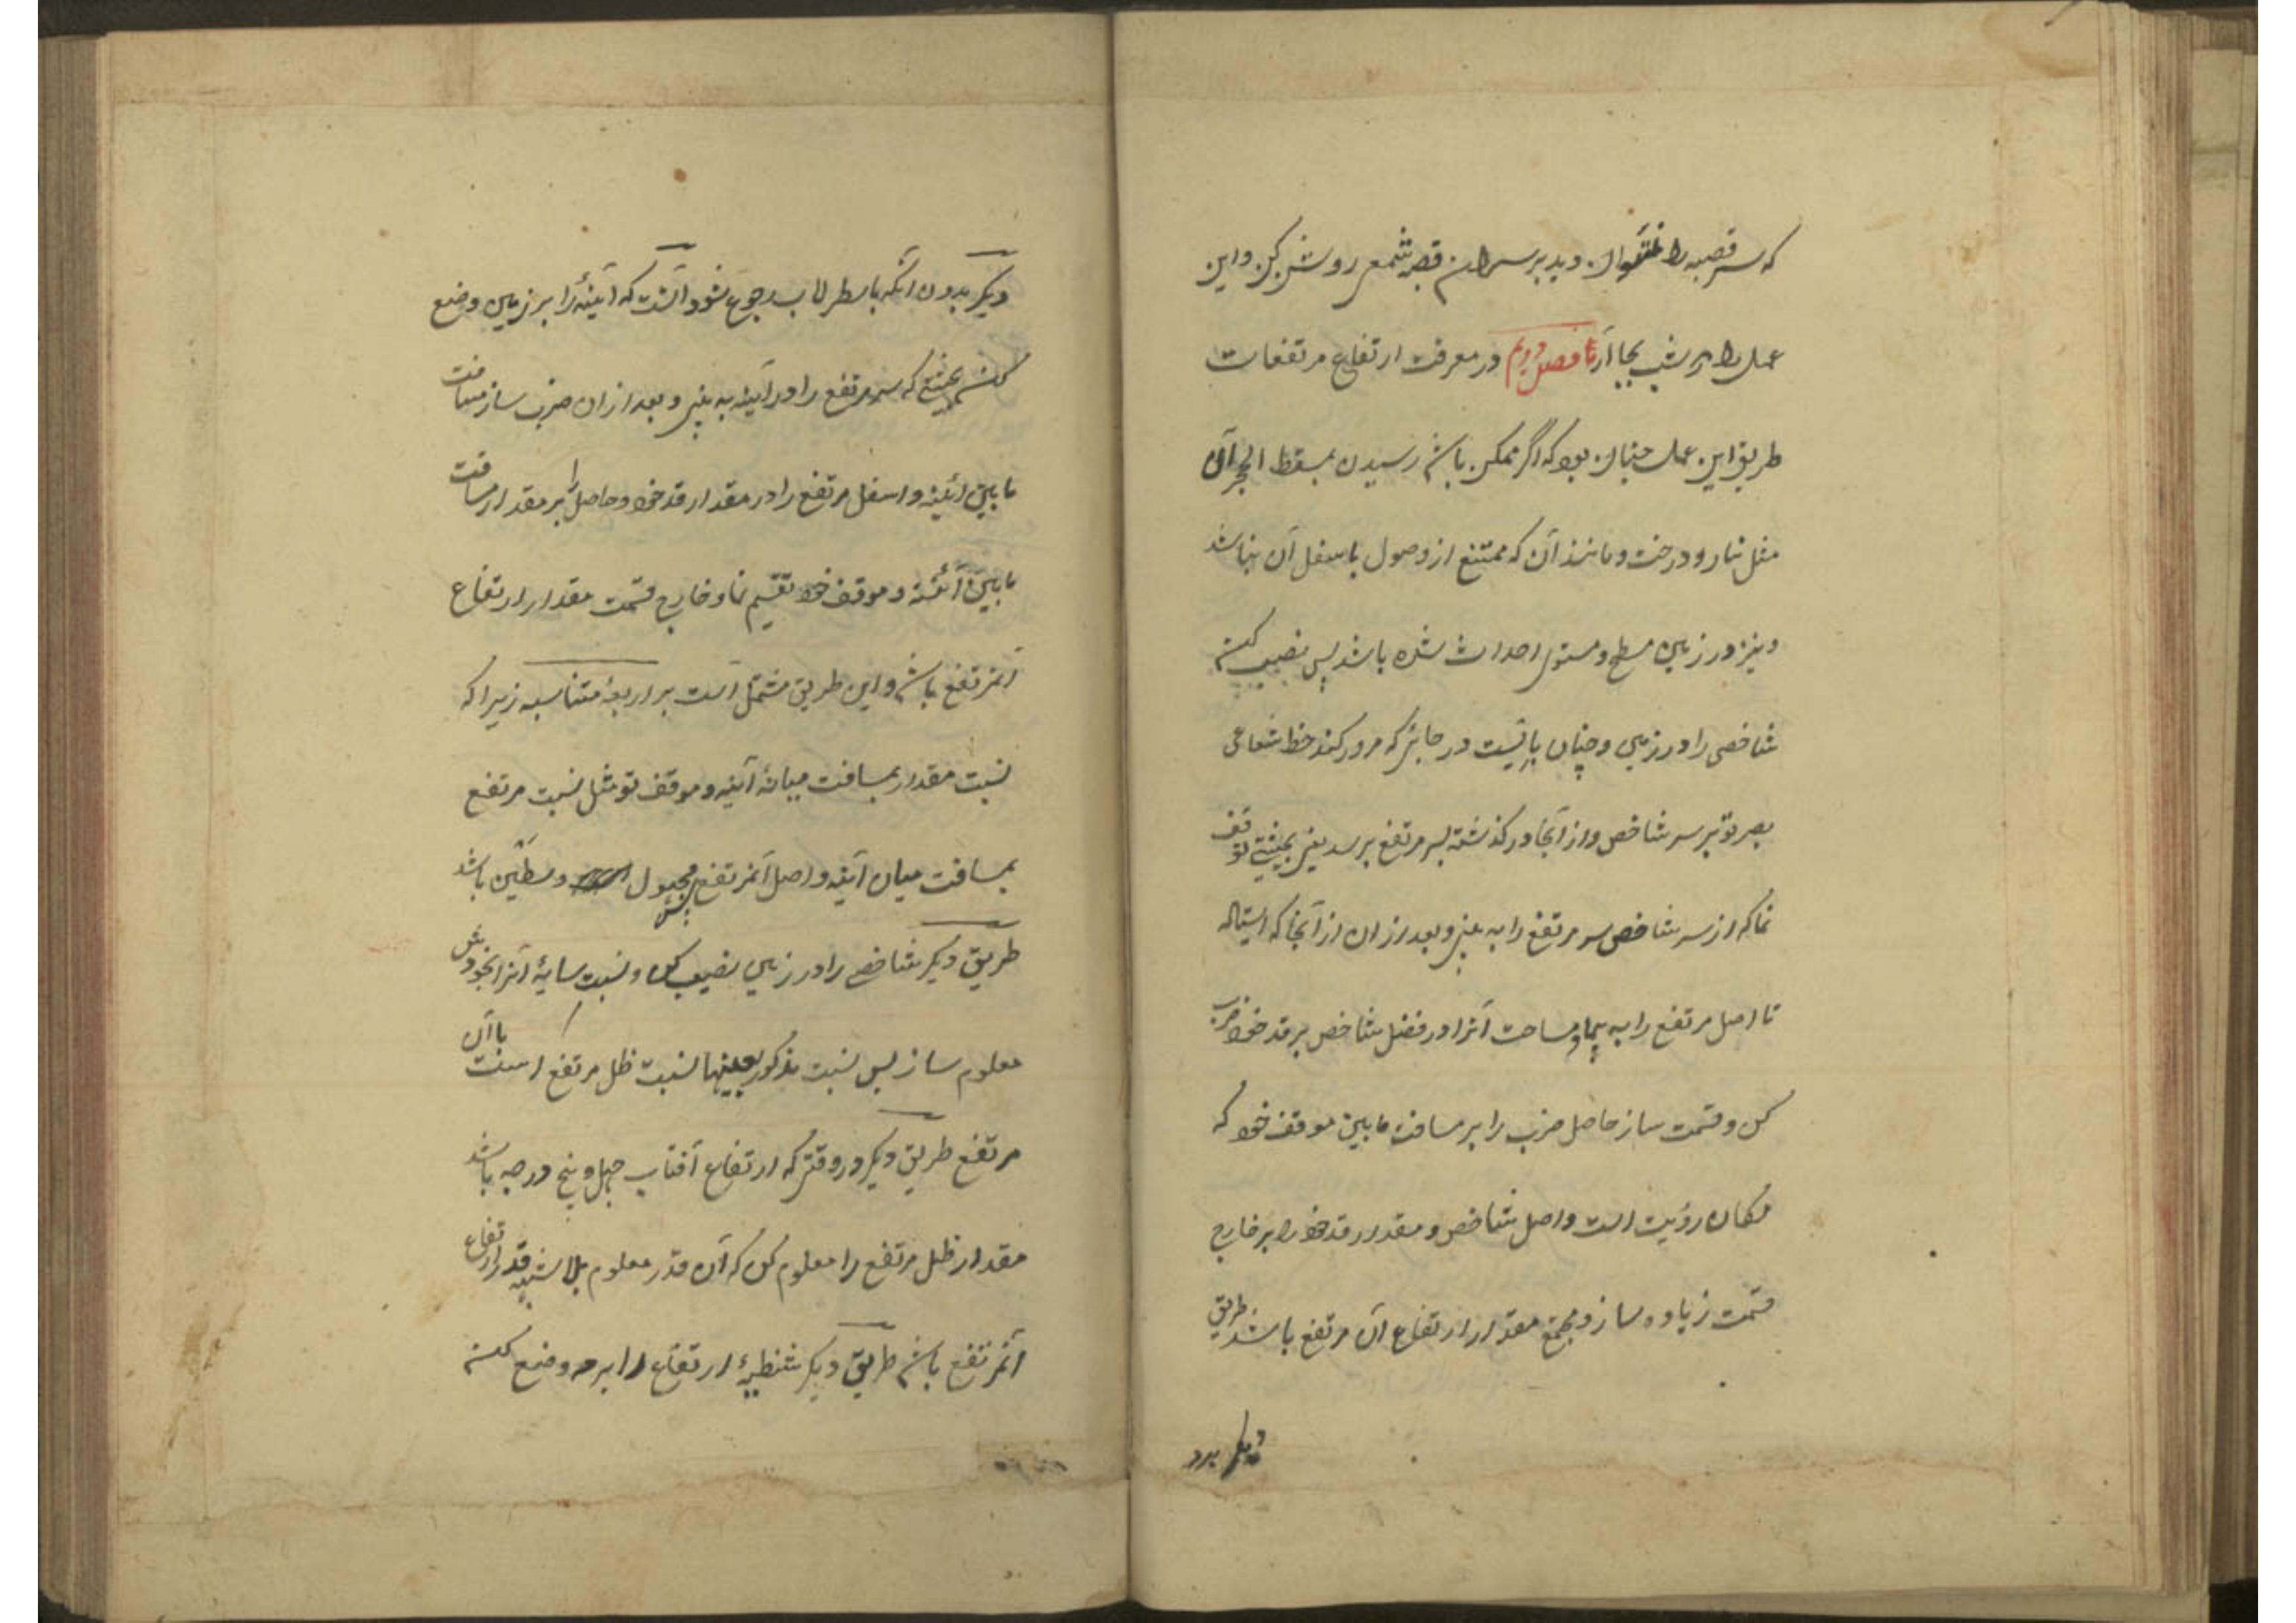 که سر قصبه را نتوان دید بر سر آن قصبه شمعی روشن کن و این
عمل را در شب بجا آر تا فصل دویم در معرفت ارتفاع مرتفعات
طریق این عمل چنان بود که اگر ممکن باشد رسیدن بمسقط الحجر آن
مثل منار و درخت و مانند آن که ممتنع از وصول باسفل آن نباشد
و نیز در زمین مسطح و مستوی احداث شده باشد پس نصب کن
شاخصی را در زمین و چنان بایست در جائیکه مرور کند خط شعاعی
بصر تو بر سر شاخص و از آنجا در گذشته بسر مرتفع برسد یعنی بحیثیتی توقف
نما که از سر شاخص سر مرتفع را به بینی و بعد ازان از آنجا که ایستاده
تا اصل مرتفع را به پیما و مساحت آنرا در فضل شاخص بر قد خود ضرب
کن و قسمت ساز حاصل ضرب را بر مسافت مابین موقف خود که
مکان رؤیت است و اصل شاخص و مقدار قد خود را بر خارج
قسمت زیاده ساز و مجتمع مقدار ارتفاع آن مرتفع باشد طریق
دیگر بدو
دیگر بدون آنکه باسطرلاب رجوع شود آنست که آئینهٔ را بر زمین وضع
کن بحیثیتی که سر مرتفع را در آینه به بینی و بعد ازان ضرب ساز مسافت
مابین ائینه و اسفل مرتفع را در مقدار قد خود و حاصل را بر مقدار مسافت
مابین آئینه و موقف خود تقسیم نما و خارج قسمت مقدار ارتفاع
آنمرتفع باشد و این طریق مشتمل است بر اربعهٔ متناسبه زیرا که
نسبت مقدار بمسافت میانهٔ آینه و موقف تو مثل نسبت مرتفع
بمسافت میان آینه و اصل آنمرتفع پس مجهول وسطین باشد
طریق دیگر شاخصی را در زمین نصب کن و نسبت سایهٔ آنرا بخودش
معلوم ساز پس نسبت مذکور بعینها نسبت ظل مرتفع است باآن
مرتفع طریق دیگر در وقتی که ارتفاع آفتاب چهل و پنج درجه باشد
مقدار ظل مرتفع را معلوم کن که آن قدر معلوم بلا شبهه قدر ارتفاع
آنمرتفع باشد طریق دیگر شظیهٔ ارتفاع را بر مه وضع کن